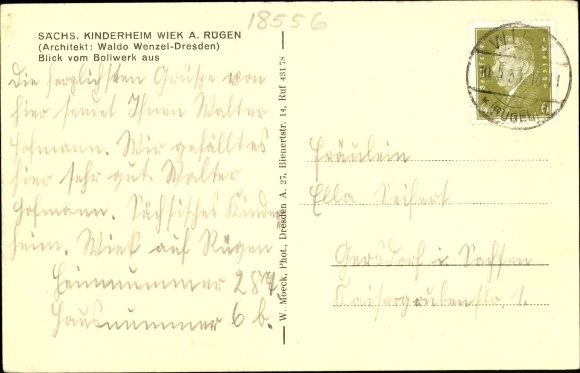 18556
SÄCHS. KINDERHEIM WIEK A. RÜGEN
(Architekt: Waldo Wenzel-Dresden)
Blick vom Bollwerk aus
Die herzlichsten Grüße von
hier sendet Ihnen Walter
Hofmann. Wir gefällt es
hier sehr gut. Walter
Hofmann. Sächsisches Kinder
heim. Wiek auf Rügen
Heimnummer 287
Hausnummer 6 b.
W. Moeck, Phot., Dresden A. 27, Bienertstr. 14, Ruf 43178
WI
(RÜGEN)
Fräulein
Ella Seifert
Gersdorf i. Sachsen
Kaisergrubenstr. 1.